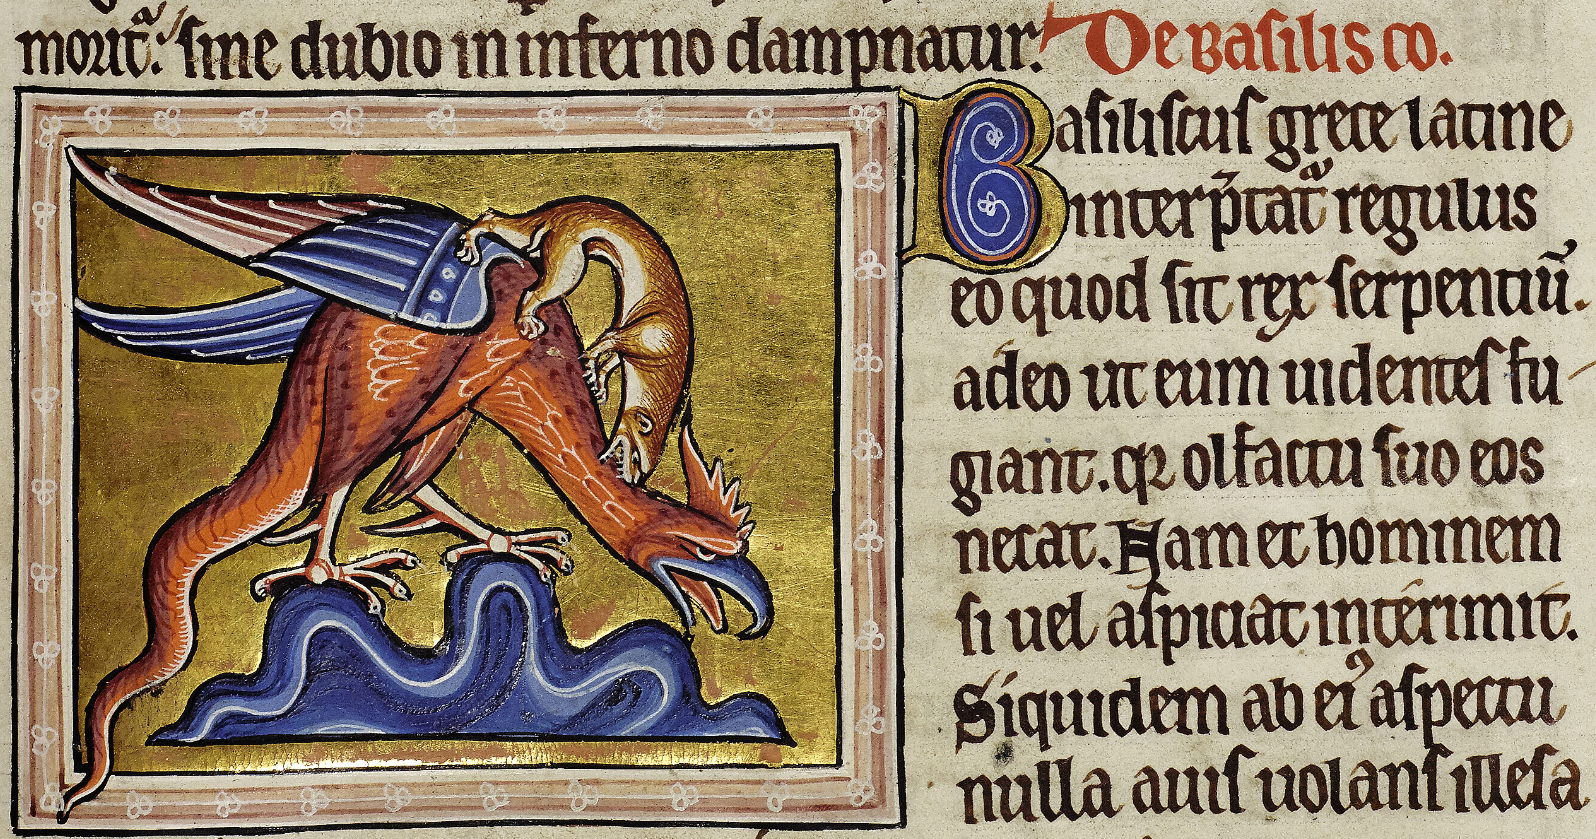 morit̄. sine dubio in inferno dampnatur. De basilisco.
Basiliscus grece latine
interp̄tat̄ regulus
eo quod sit rex serpentiū.
adeo ut eum uidentes fu
giant. qꝛ olfactu suo eos
necat. Nam et hominem
si uel aspiciat interimit.
Siquidem ab eiꝰ aspectu
nulla auis uolans illesa